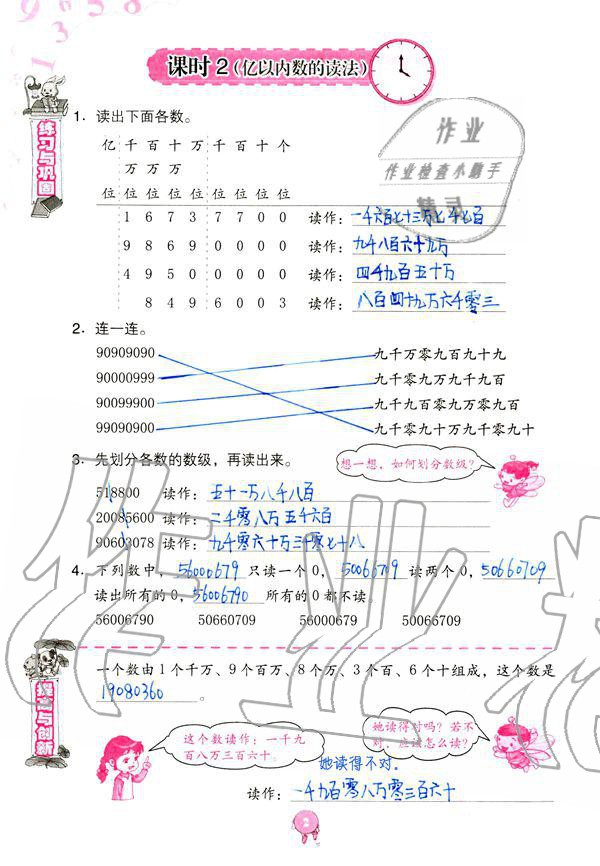 9 6 5 8
1 3
课时 2（亿以内数的读法）
练习与巩固
1. 读出下面各数。
亿 千 百 十 万 千 百 十 个
万 万 万
位 位 位 位 位 位 位 位 位
1 6 7 3 7 7 0 0 读作：一千六百七十三万七千七百
9 8 6 9 0 0 0 0 读作：九千八百六十九万
4 9 5 0 0 0 0 0 读作：四千九百五十万
8 4 9 6 0 0 3 读作：八百四十九万六千零三
作业
作业检查小助手
精灵
2. 连一连。
90909090 九千万零九百九十九
90000999 九千零九万九千九百
90099900 九千九百零九万零九百
99090900 九千零九十万九千零九十
3. 先划分各数的数级，再读出来。
想一想，如何划分数级？
518800 读作：五十一万八千八百
20085600 读作：二千零八万五千六百
90603078 读作：九千零六十万三千零七十八
4. 下列数中，56000679 只读一个 0，50066709 读两个 0，50660709
读出所有的 0，56006790 所有的 0 都不读。
56006790 50660709 56000679 50066709
与创新
一个数由 1 个千万、9 个百万、8 个万、3 个百、6 个十组成，这个数是
19080360。
这个数读作：一千九
百八万三百六十。
她读得对吗？若不
对，应该怎么读？
她读得不对.
读作：一千九百零八万零三百六十
2
作业精